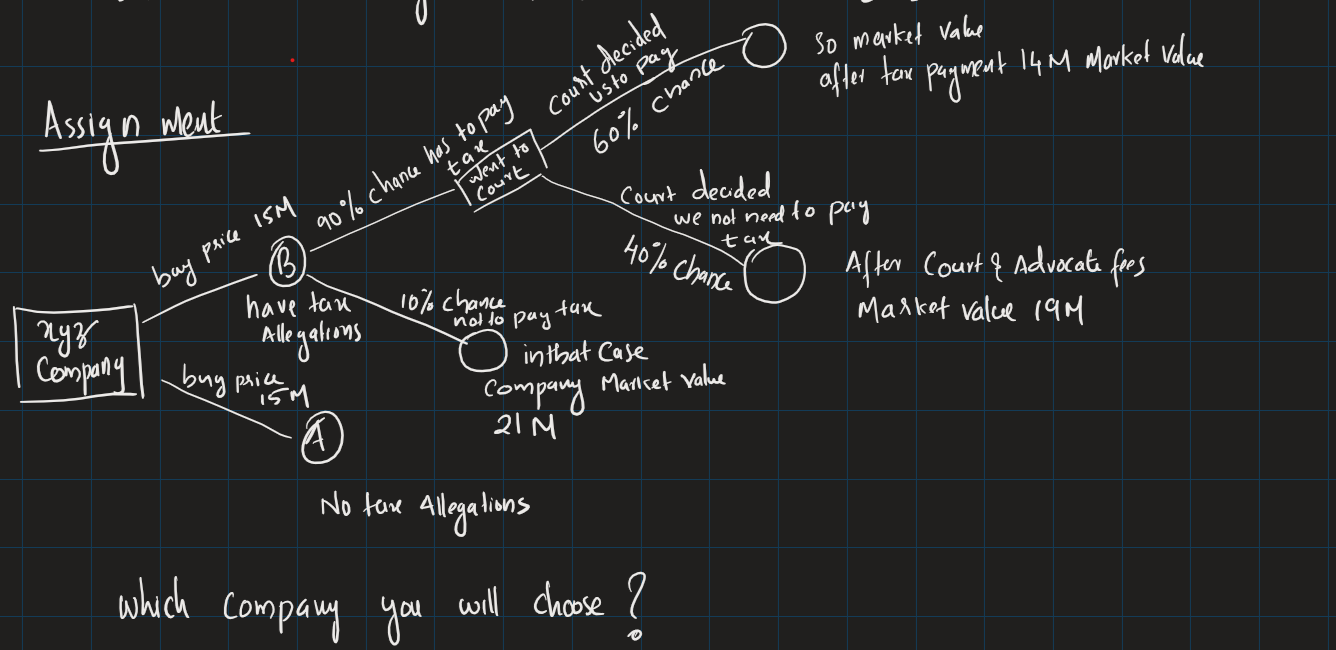 Assignment
xyz
Company
buy price 15M
B
have tax
Allegations
90% chance has to pay
tax
Went to
Court
Court decided
us to pay
60% chance
So market value
after tax payment 14M Market Value
Court decided
we not need to pay
tax
40% chance
After Court & Advocate fees
Market value 19M
10% chance
not to pay tax
in that Case
Company Market Value
21M
buy price
15M
A
No tax Allegations
which company you will choose?